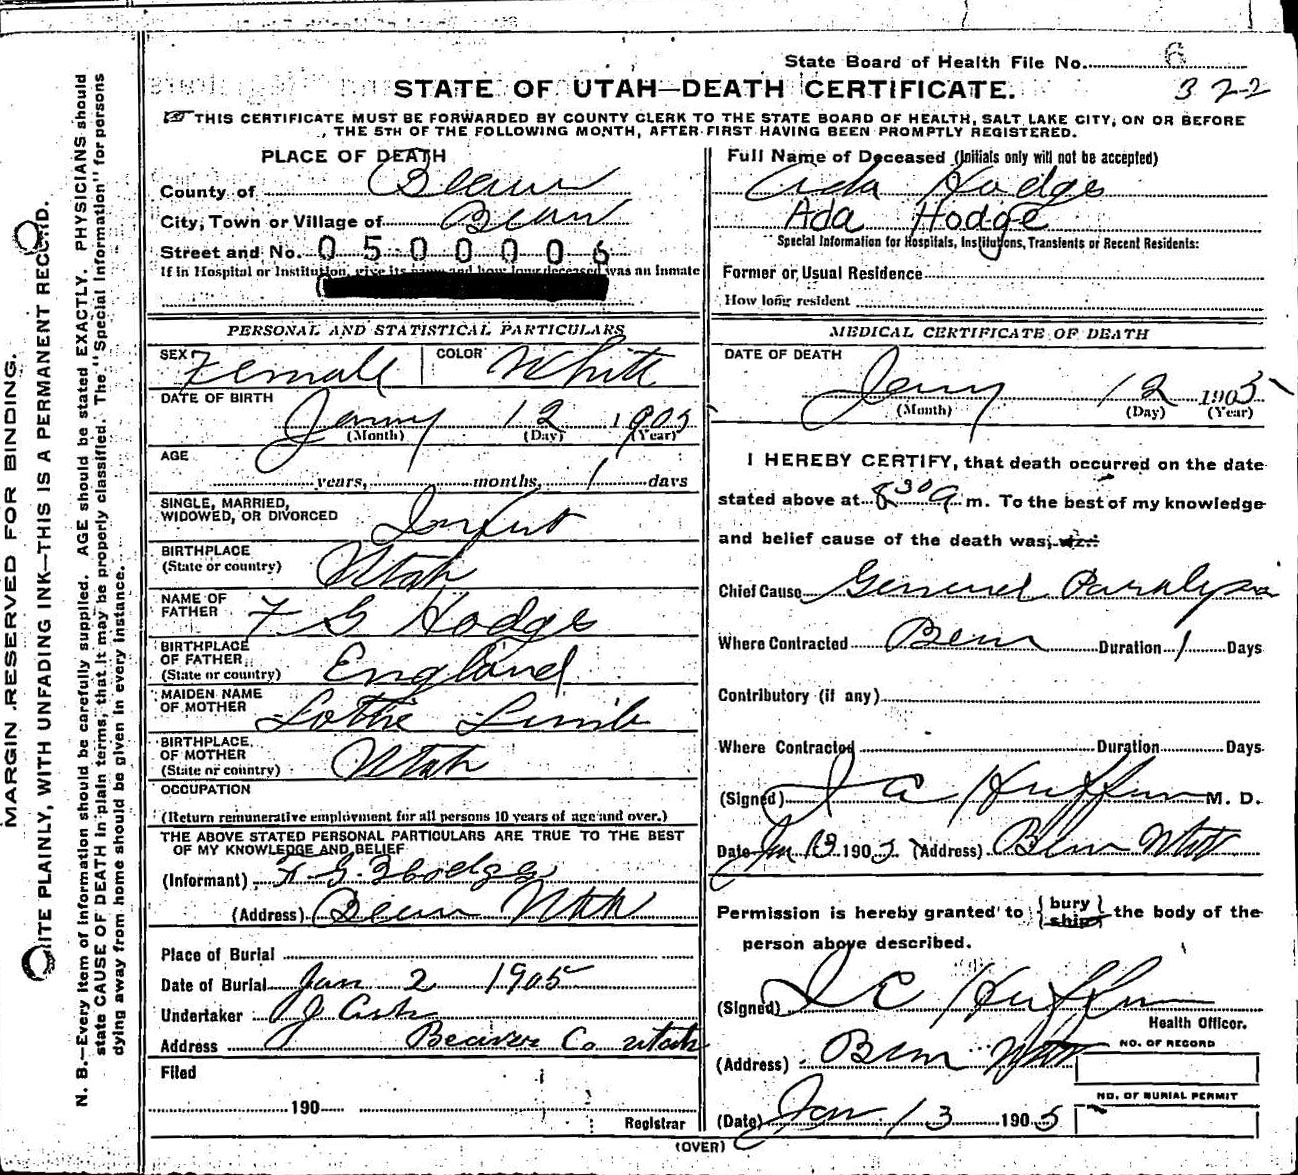 State Board of Health File No. 6
STATE OF UTAH—DEATH CERTIFICATE.
322
THIS CERTIFICATE MUST BE FORWARDED BY COUNTY CLERK TO THE STATE BOARD OF HEALTH, SALT LAKE CITY, ON OR BEFORE
THE 5TH OF THE FOLLOWING MONTH, AFTER FIRST HAVING BEEN PROMPTLY REGISTERED.
MARGIN RESERVED FOR BINDING.
ITE PLAINLY, WITH UNFADING INK—THIS IS A PERMANENT RECORD.
N. B.—Every item of information should be carefully supplied. AGE should be stated EXACTLY. PHYSICIANS should
state CAUSE OF DEATH in plain terms, that it may be properly classified. The "Special Information" for persons
dying away from home should be given in every instance.
PLACE OF DEATH
County of Beaver
City, Town or Village of Beaver
Street and No. 0500006
If in Hospital or Institution, give its and how long deceased was an Inmate
PERSONAL AND STATISTICAL PARTICULARS
SEX Female COLOR White
DATE OF BIRTH
Jany 12 1905
(Month) (Day) (Year)
AGE
years, months, 1 days
SINGLE, MARRIED,
WIDOWED, OR DIVORCED Infant
BIRTHPLACE
(State or country) Utah
NAME OF
FATHER F G Hodges
BIRTHPLACE
OF FATHER
(State or country) England
MAIDEN NAME
OF MOTHER Lottie
BIRTHPLACE
OF MOTHER
(State or country) Utah
OCCUPATION
(Return remunerative employment for all persons 10 years of age and over.)
THE ABOVE STATED PERSONAL PARTICULARS ARE TRUE TO THE BEST
OF MY KNOWLEDGE AND BELIEF
(Informant) F. G. Hodges
(Address) Beaver Utah
Place of Burial
Date of Burial Jan 2 1905
Undertaker J
Address Beaver Co Utah
Filed
190
Registrar
Full Name of Deceased (Initials only will not be accepted)
Ada Hodges
Ada Hodge
Special Information for Hospitals, Institutions, Transients or Recent Residents:
Former or Usual Residence
How long resident
MEDICAL CERTIFICATE OF DEATH
DATE OF DEATH
Jany 12 1905
(Month) (Day) (Year)
I HEREBY CERTIFY, that death occurred on the date
stated above at 8 30 a m. To the best of my knowledge
and belief cause of the death was, viz:
Chief Cause General Paralysis
Where Contracted Beaver Duration 1 Days
Contributory (if any)
Where Contracted Duration Days
(Signed) M. D.
Date Jan 13 1905 (Address) Beaver Utah
Permission is hereby granted to { bury ship } the body of the
person above described.
(Signed)
Health Officer.
(Address) Beaver Utah
NO. OF RECORD
NO. OF BURIAL PERMIT
(Date) Jan 13 1905
(OVER)